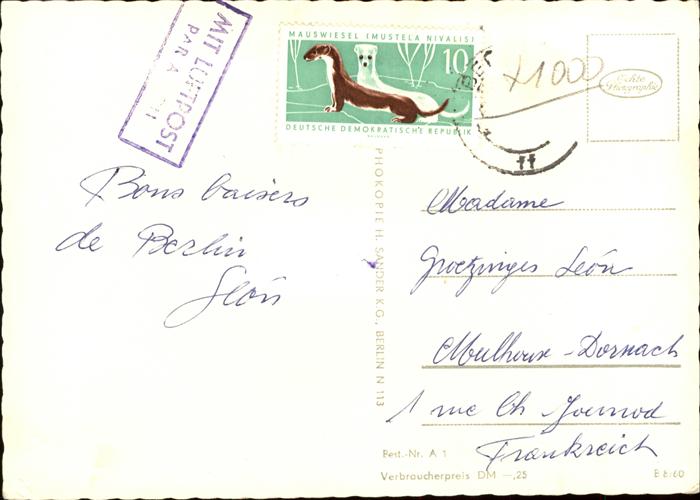 MIT LUFTPOST
PAR AVION
MAUSWIESEL (MUSTELA NIVALIS)
10
DEUTSCHE DEMOKRATISCHE REPUBLIK
+1000
Echte
Photographie
Bons baisers
de Berlin
Léon
PHOKOPIE H. SANDER K.G., BERLIN N 113
Madame
Groetzinger Léon
Mulhouse-Dornach
1 rue Ch
Frankreich
Best.-Nr. A 1
Verbraucherpreis DM —,25
B 8:60